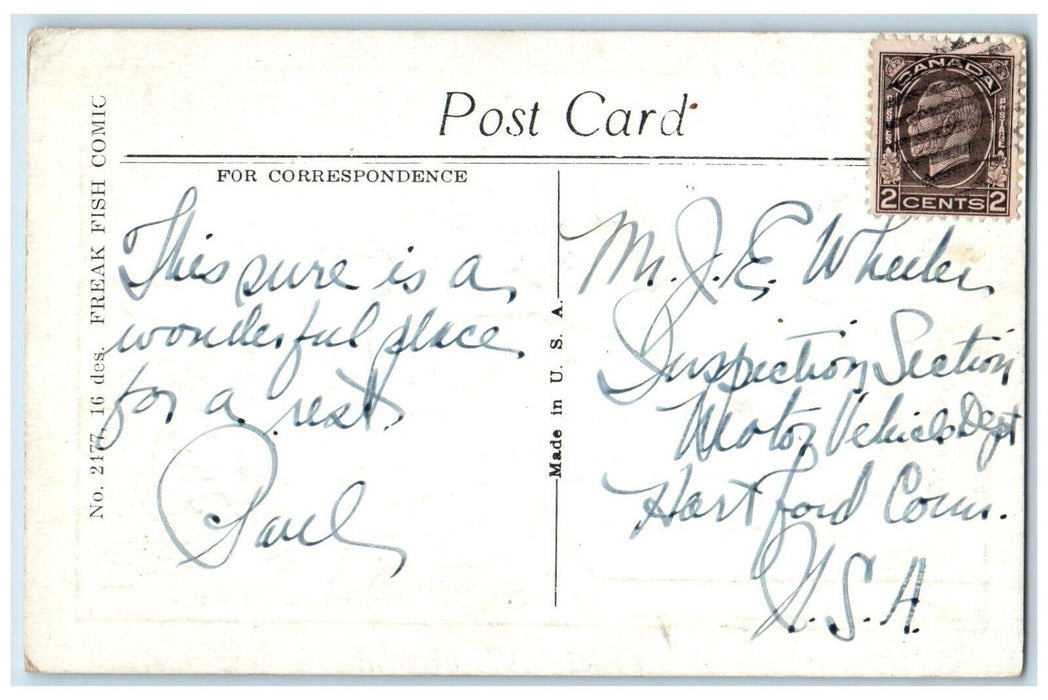 Post Card
FOR CORRESPONDENCE
This sure is a
wonderful place
for a rest.
Paul
No. 2177, 16 des. FREAK FISH COMIC
Made in U. S. A.
CANADA
POSTES
POSTAGE
2 CENTS 2
Mr. J. E. Wheeler
Inspection Section
Motor Vehicle Dept
Hartford Conn.
U.S.A.